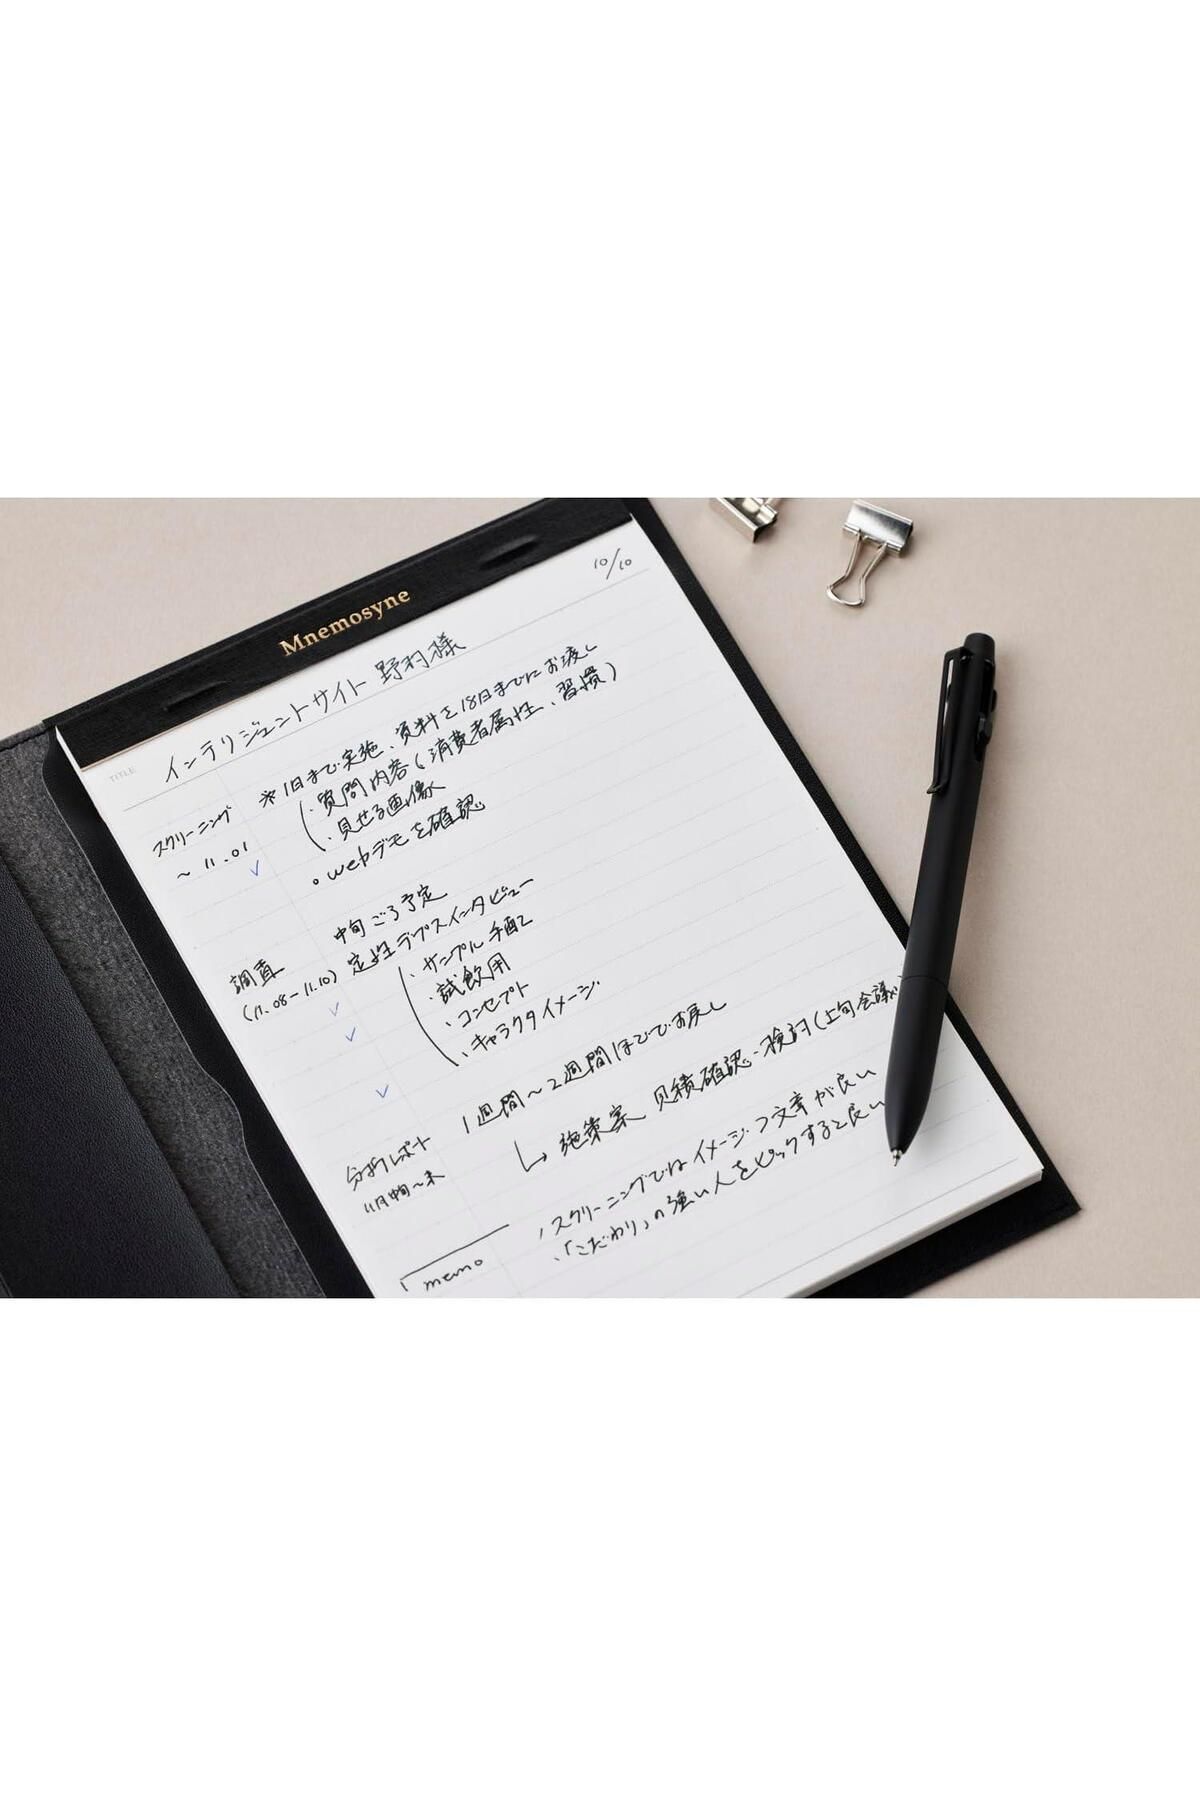 Mnemosyne
10/10
TITLE
インテリジェントサイト 野村様
スクリーニング
~ 11.01
※1日まで実施、資料を18日までにお渡し
・質問内容(消費者属性、習慣)
・見せる画像
。webデモを確認
調査
(11.08-11.10)
中旬ごろ予定
定性デプスインタビュー
・サンプル手配
・試飲用
・コンセプト
・キャラクタイメージ
分析レポート
11月中旬~末
1週間~2週間ほどでお戻し
↳ 施策案、見積確認・検討(上旬会議
memo
・スクリーニングではイメージつく文章が良い
・「こだわり」の強い人をピックすると良い